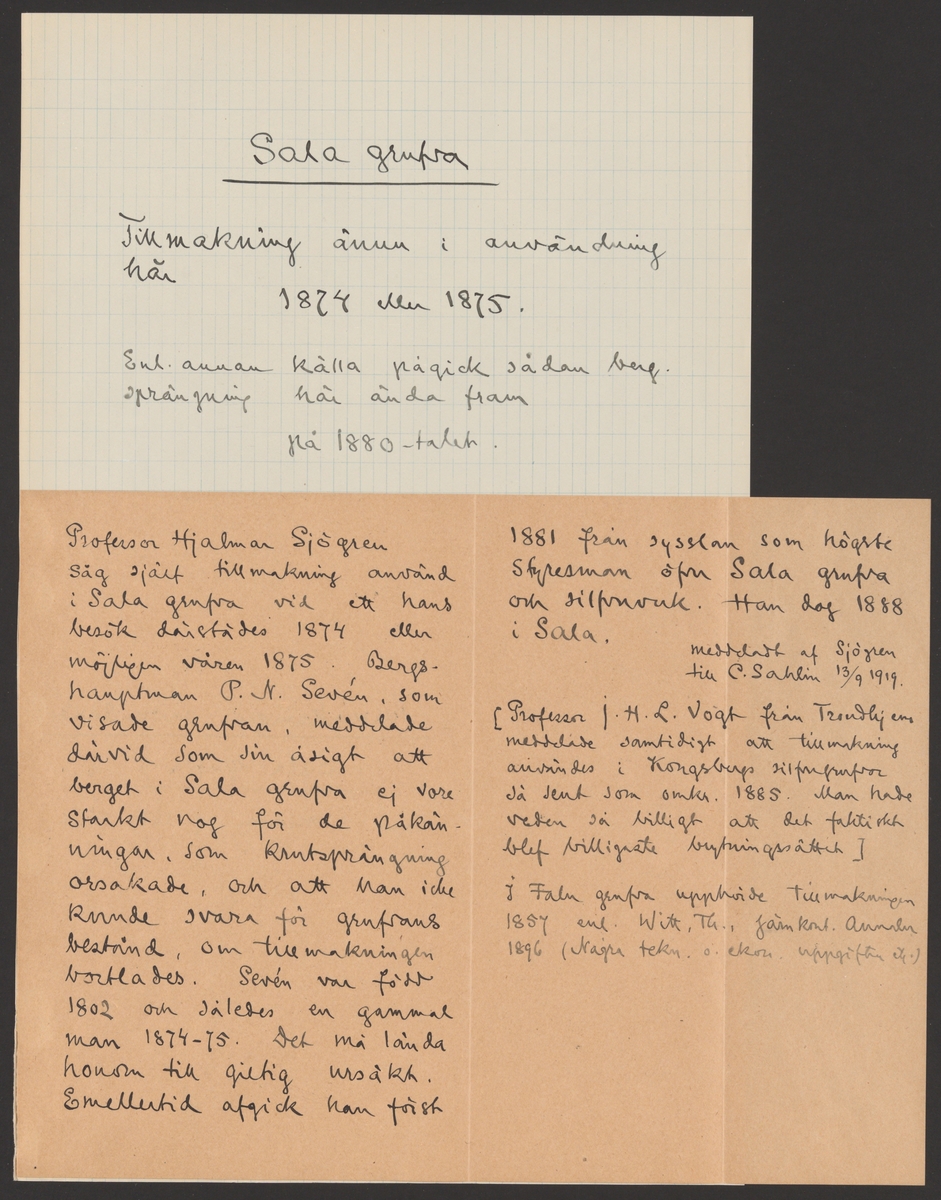 Sala grufva
Tillmakning ännu i användning
här
1874 eller 1875.
Enl. annan källa pågick sådan berg-
sprängning här ända fram
på 1880-talet.
Professor Hjalmar Sjögren
såg själf tillmakning använd
i Sala grufva vid ett hans
besök därstädes 1874 eller
möjligen våren 1875. Bergs-
hauptman P. N. Sevén, som
visade grufvan, meddelade
därvid som sin åsigt att
berget i Sala grufva ej vore
starkt nog för de påkän-
ningar, som krutsprängning
orsakade, och att han icke
kunde svara för grufvans
bestånd, om tillmakningen
bortlades. Sevén var född
1802 och således en gammal
man 1874-75. Det må lända
honom till giltig ursäkt.
Emellertid afgick han först
1881 från sysslan som högste
styresman öfver Sala grufva
och silfververk. Han dog 1888
i Sala.
meddeladt af Sjögren
till C. Sahlin 13/9 1919.
[Professor J. H. L. Vogt från Trondhjem
meddelade samtidigt att tillmakning
användes i Kongsbergs silfvergrufvor
så sent som omkr. 1885. Man hade
veden så billigt att det faktiskt
blef billigaste brytningssättet]
I Falu grufva upphörde tillmakningen
1857 enl. Witt, Th., Järnkont. Annaler
1896 (Några tekn. o. ekon. uppgifter etc.)